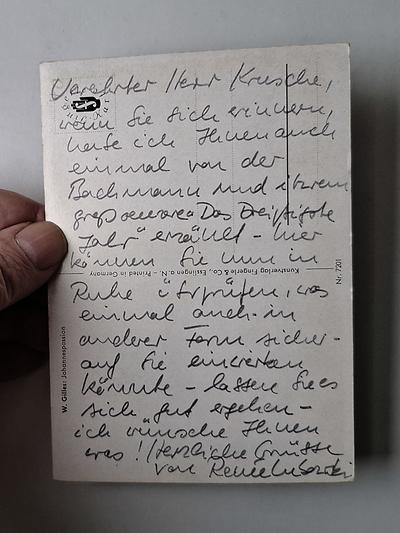 Verehrter Herr Krusche,
wenn Sie sich erinnern,
habe ich Ihnen auch
einmal von der
Bachmann und ihrem
"Das Dreißigste
Jahr" erzählt - hier
können Sie nun in
Ruhe überprüfen, was
einmal auch in
anderer Form sicher-
auf Sie einwirken
könnte - lassen Sie es
sich gut ergehen -
ich wünsche Ihnen
was! Herzliche Grüsse
von
Kunstverlag Fingerle & Co., Esslingen a. N. – Printed in Germany
Nr. 7201
W. Gilles: Johannespassion